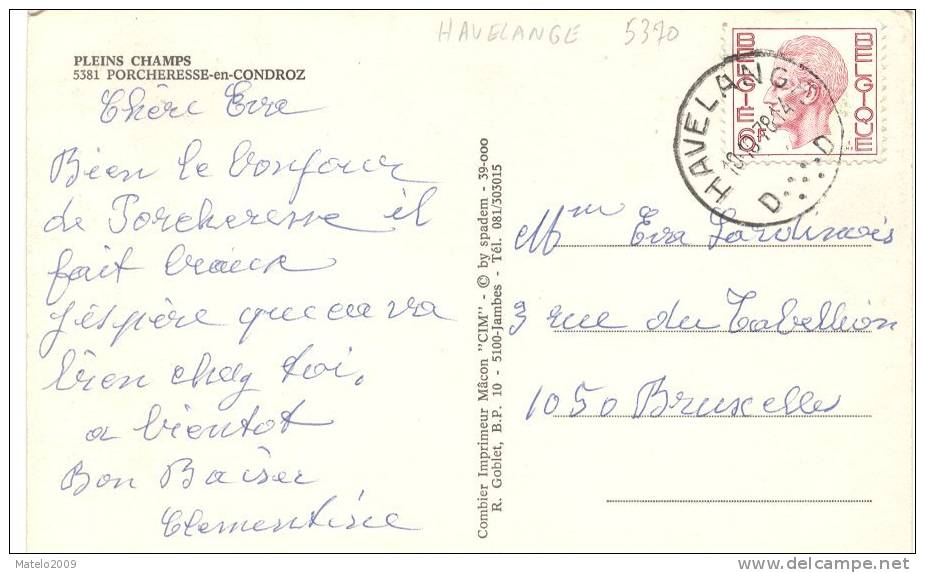 HAVELANGE 5370
PLEINS CHAMPS
5381 PORCHERESSE-en-CONDROZ
Chère Eva
Bien le bonjour
de Porcheresse il
fait
j'espère que ca va
bien chez toi,
a bientot
Bon Baiser
Clementine
Combier Imprimeur Mâcon "CIM" - © by spadem - 39-000
R. Goblet, B.P. 10 - 5100-Jambes - Tél. 081/303015
BELGIE
BELGIQUE
6F
HAVELANGE
D D
Mme Eva
3 rue du Tabellion
1050 Bruxelles
Matelo2009
delcampe.net